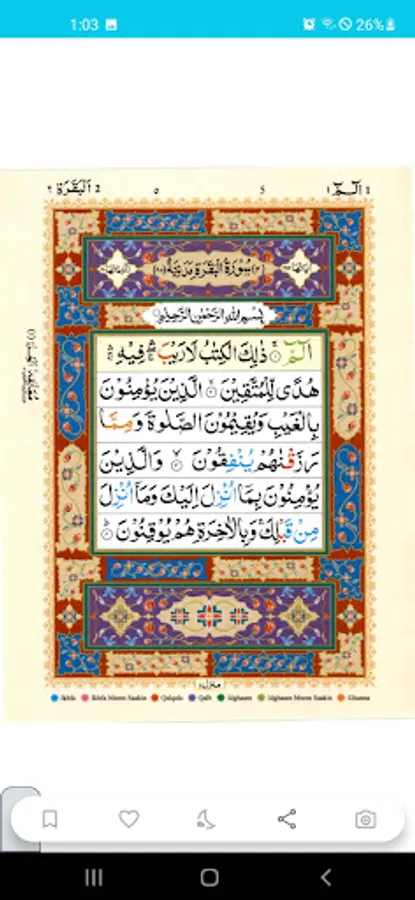 1:03
26%
٢ اَلْبَقَرَة 2
٥
5
١ الٓمّٓ 1
سُوْرَةُ الْبَقَرَةِ مَدَنِيَّةٌ
بِسْمِ اللهِ الرَّحْمٰنِ الرَّحِيْمِ
الٓمّٓ ۚ ذٰلِكَ الْكِتٰبُ لَا رَيْبَ ۛ فِيْهِ ۛ
هُدًى لِّلْمُتَّقِيْنَ ۙ الَّذِيْنَ يُؤْمِنُوْنَ
بِالْغَيْبِ وَيُقِيْمُوْنَ الصَّلٰوةَ وَمِمَّا
رَزَقْنٰهُمْ يُنْفِقُوْنَ ۙ وَالَّذِيْنَ
يُؤْمِنُوْنَ بِمَآ اُنْزِلَ اِلَيْكَ وَمَآ اُنْزِلَ
مِنْ قَبْلِكَ ۚ وَبِالْاٰخِرَةِ هُمْ يُوْقِنُوْنَ ؕ
منزل ١
Ikhfa
Ikhfa Meem Saakin
Qalqala
Qalb
Idghaam
Idghaam Meem Saakin
Ghunna